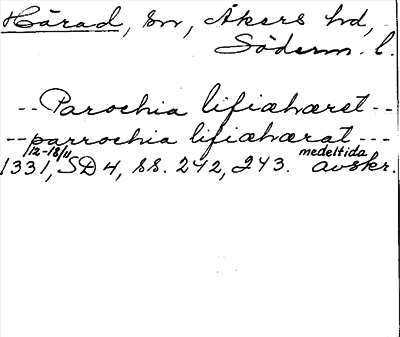 Härad, sn, Åkers hd,
Söderm. l.
-- Parochia lifiæhæret --
-- parrochia lifiæhærat ---
1331, 12-18/11 SD 4, ss. 242, 243. medeltida avskr.